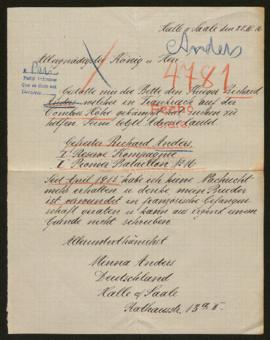 Halle a/Saale den
Anders
Allergnädigster König u. Herr
4781
Gestatte mir die Bitte den Bruder Richard
Anders welcher in Frankreich auf der
Combres Höhe gekämpft hat suchen zu
helfen. Seine Feld Adresse lautet
Gefreiter Richard Anders,
I Reserve Kompagnie
I Pionier Bataillon No 16.
Seit April 1915 habe ich keine Nachricht
mehr erhalten u. denke mein Bruder
ist verwundet in französische Gefangen
schaft geraten u. kann aus irgend einem
Grunde nicht schreiben.
Alleruntertänichst
Minna Anders
Deutschland
Halle a/Saale
Rathausstr. 13a I.